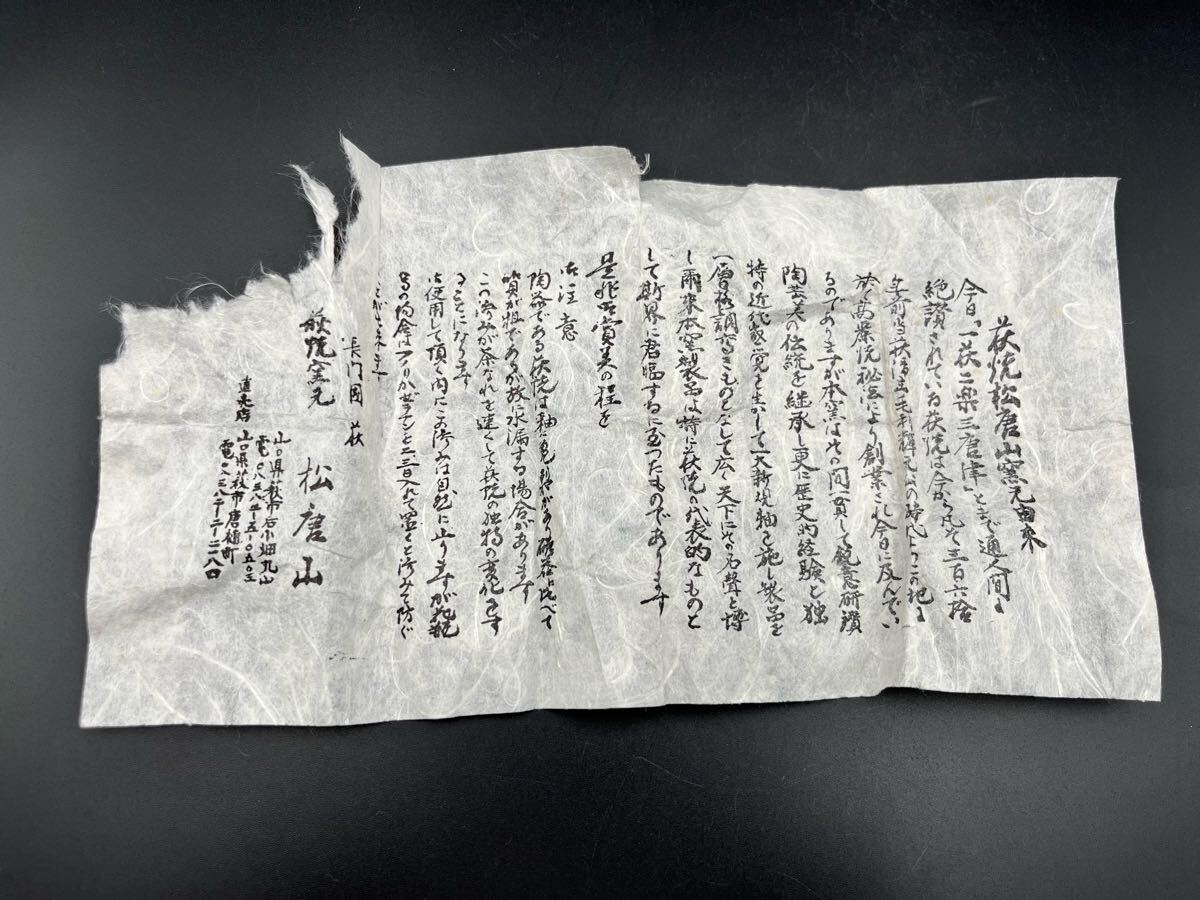 萩焼松唐山窯元由来
今日「一萩二楽三唐津」とまで通人間に
絶讃されている萩焼は今から凡そ三百六拾
年前当萩藩主毛利輝元公の時代よりこの地に
於て高麗焼秘法により創業され今日に及んでい
るのでありますが本窯はその間一貫して鋭意研鑽
陶芸美の伝統を継承し更に歴史的経験と独
特の近代感覚を生かして一大新規軸を施し製品を
一層格調高きものとなして広く天下にその名声を博
し爾来本窯製品は特に萩焼の代表的なものと
して斯界に君臨するに至つたものであります
是非御賞美の程を
御注意
陶器である萩焼は釉にも があり磁器に比べて
質が粗であるが故に水漏する場合があります
この滲みが茶なれを速くして萩焼の独特の変化をす
ることになります
御使用して頂く内にこの滲みは自然に止りますが花瓶
等の場合はフノリかゼラチンを二、三日入れて置くと滲みを防ぐ
長門国 萩
萩焼窯元 松唐山
直売店 山口県萩市石小畑丸山
電〇八三八二-五-〇五〇三
山口県萩市唐樋町
電〇八三八二-二-二二八〇